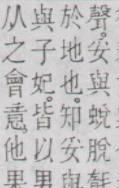 聲。安與蛻脫
於地也。知安與
與子妃。皆以男
从之會意他果